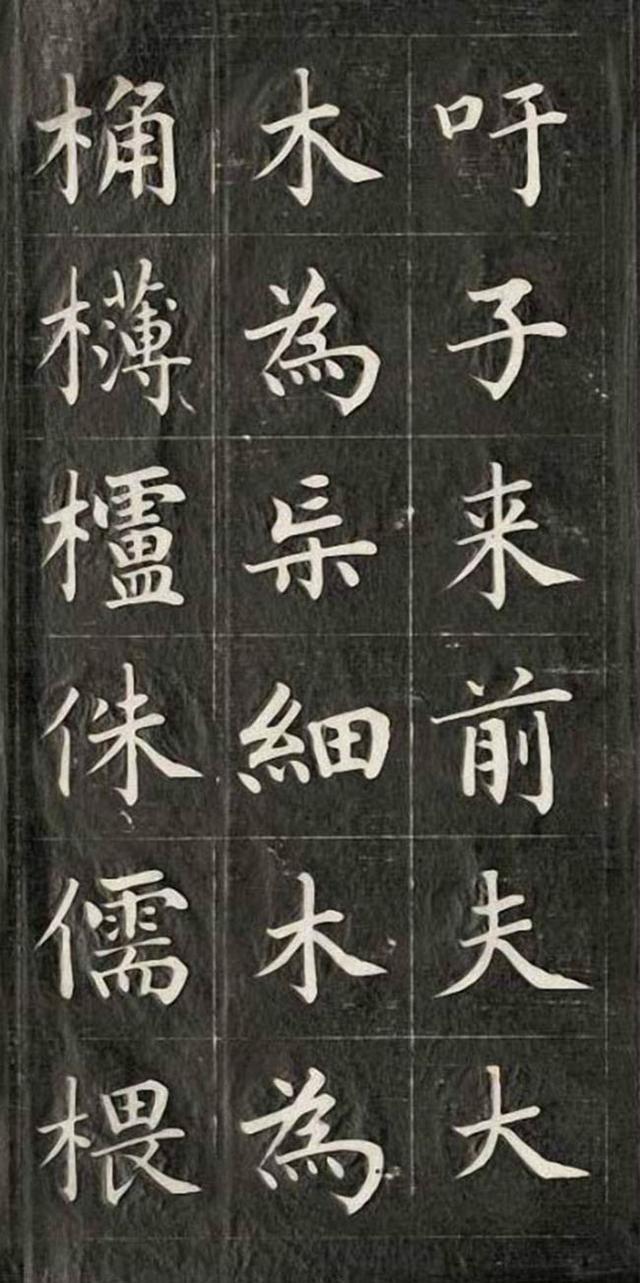 吁子来前夫大
木為杗細木為
桷欂櫨侏儒椳